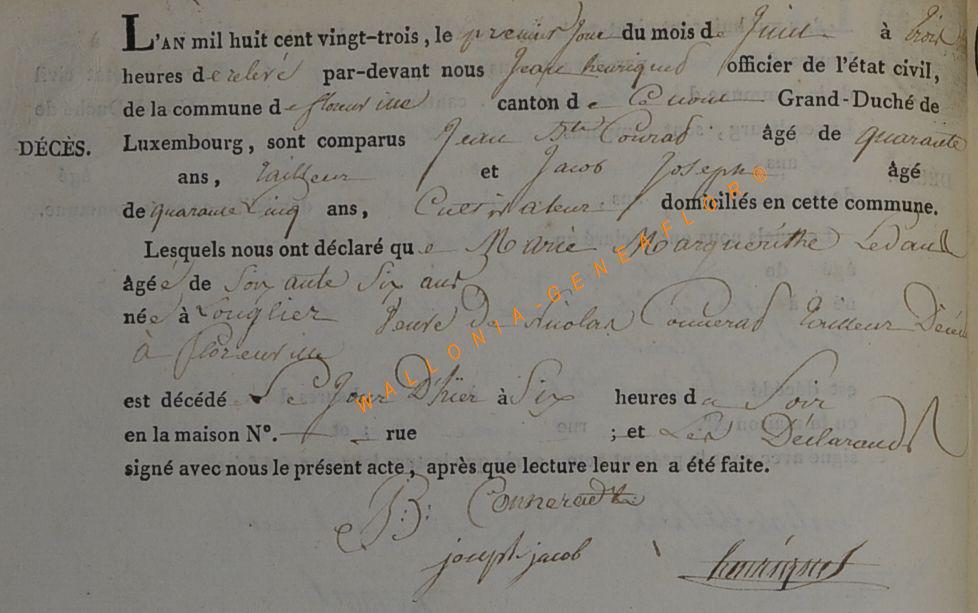 L'AN mil huit cent vingt-trois, le premier Jour du mois de Juin à trois
heures de relevé par-devant nous Jean henriquet officier de l'état civil,
de la commune de florenville canton de Grand-Duché de
DÉCÈS. Luxembourg, sont comparus Jean Bte Conrad âgé de quarante
ans, tailleur et Jacob Joseph âgé
de quarante Cinq ans, Cultivateur domiciliés en cette commune.
Lesquels nous ont déclaré que Marie Marguerithe
âgée de Soixante Six ans
née à Longlier Veuve De Nicolas Connerad tailleur
à florenville
est décédé Le Jour D'hier à Six heures du Soir
en la maison N°. rue ; et Les Déclarants
signé avec nous le présent acte, après que lecture leur en a été faite.
B: Conneradt
joseph jacob henriquet
WALLONIA-GENEAFLOR®